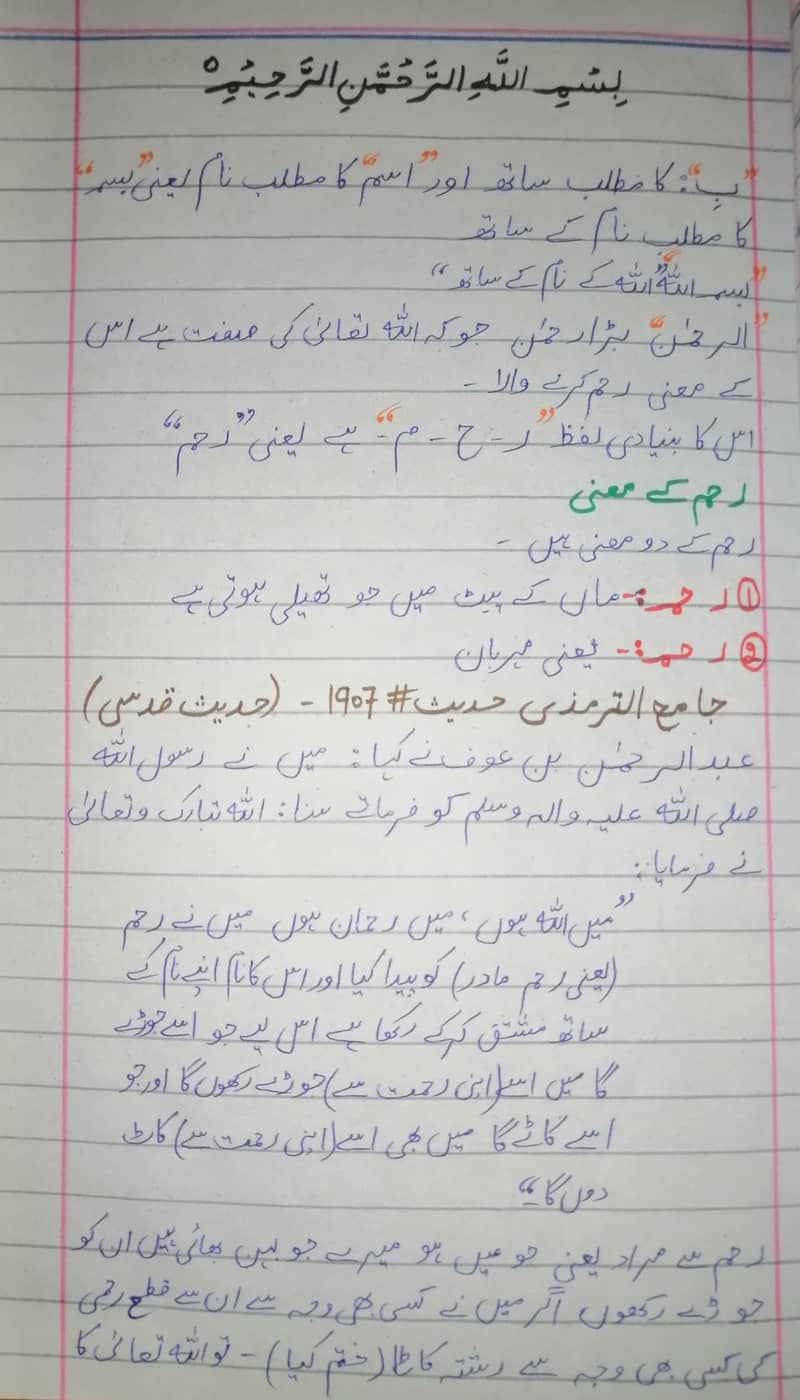 بِسْمِ اللَّهِ الرَّحْمَّنِ الرَّحِيْمِ
"بِ": کا مطلب ساتھ اور "اسم" کا مطلب نام یعنی "بسم"
کا مطلب نام کے ساتھ
"بسم اللہ" "اللہ کے نام کے ساتھ"
"الرحمٰن" بڑا رحمٰن جو کہ اللہ تعالیٰ کی صفت ہے اس
کے معنی رحم کرنے والا -
اس کا بنیادی لفظ "ر - ح - م -" ہے یعنی "رحم"
رحم کے معنی
رحم کے دو معنی ہیں -
① رحم:- ماں کے پیٹ میں جو تھیلی ہوتی ہے
② رحم:- یعنی مہربان
جامع الترمذی حدیث# 1907 - (حدیث قدسی)
عبدالرحمٰن بن عوف نے کہا: میں نے رسول اللہ
صلی اللہ علیہ والہ وسلم کو فرماتے سنا: اللہ تبارک وتعالیٰ
نے فرمایا:
"میں اللہ ہوں، میں رحمان ہوں میں نے رحم
(یعنی رحم مادر) کو پیدا کیا اور اس کا نام اپنے نام کے
ساتھ مشتق کرکے رکھا ہے اس لیے جو اسے جوڑے
گا میں اسے (اپنی رحمت سے) جوڑے رکھوں گا اور جو
اسے کاٹے گا میں بھی اسے (اپنی رحمت سے) کاٹ
دوں گا۔"
رحم سے مراد یعنی جو میں ہو میرے جو بہن بھائی ہیں ان کو
جوڑے رکھوں اگر میں نے کسی بھی وجہ سے ان سے قطع رحمی
کی کسی بھی وجہ سے رشتہ کاٹا (ختم کیا) - تو اللہ تعالیٰ کا